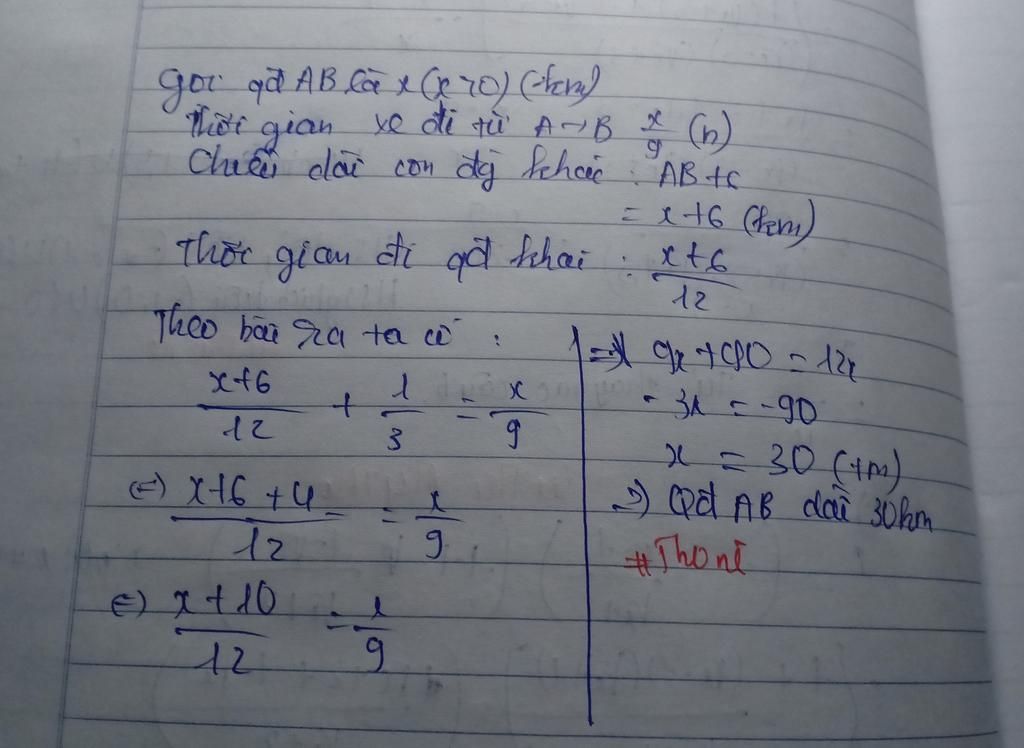 Gọi qđ AB là x (x>0) (km)
Thời gian xe đi từ A→B x/9 (h)
Chiều dài con đg khác : AB+6
= x+6 (km)
Thời gian đi qđ khác : x+6/12
Theo bài ra ta có :
x+6/12 + 1/3 = x/9
(=) x+6+4/12 = x/9
(=) x+10/12 = x/9
=> 9x+90 = 12x
-3x = -90
x = 30 (km)
=> Qđ AB dài 30km